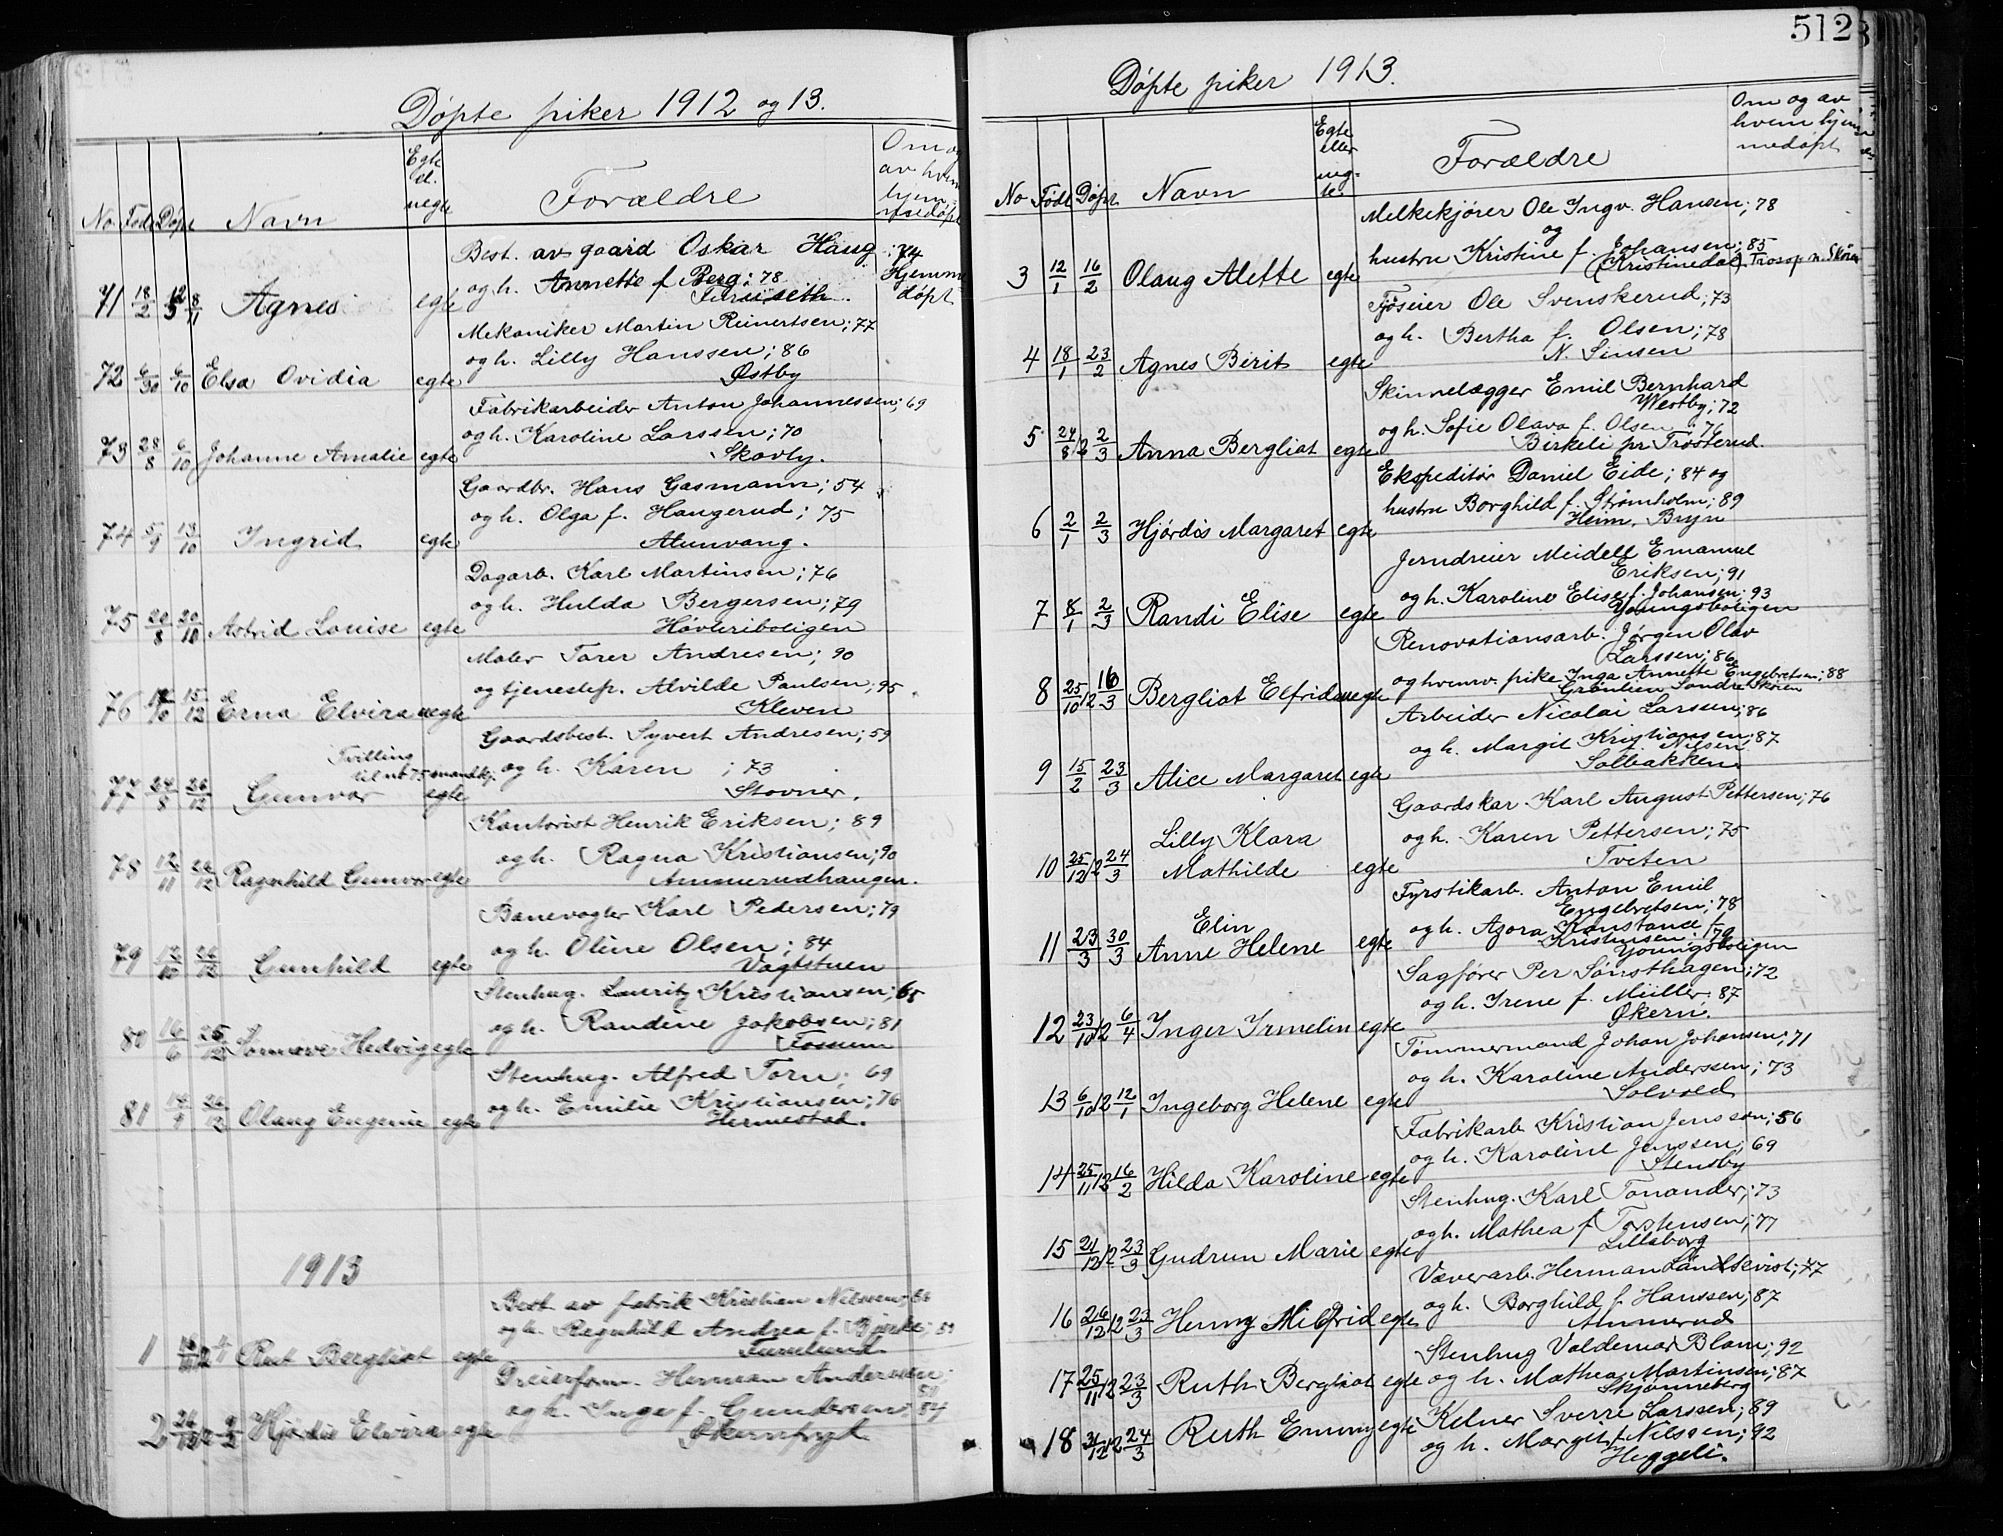 Døpte piker 1912 og 13.
No Født Døpt Navn Egte el. uegte Forældre Om og av hvem hjem- medøpt
Best. av gaard Oskar Haug; 74
og h. Annette f. Berg; 78 Hjemme
71 18/2 12 8/11 Agnes egte døpt
Mekaniker Martin Reinertsen; 77
og h. Lilly Hanssen; 86
72 6/10 Elsa Ovidia egte Østby
Fabrikarbeider Anton Johannessen; 69
og h. Karoline Larssen; 70
73 28/8 6/10 Johanne Amalie egte Skovly.
Gaardbr. Hans Gasmann; 54
og h. Olga f. Haugerud; 75
74 5/9 13/10 Ingrid egte Alunvang.
Dagarb. Karl Martinsen; 76
og h. Hulda Bergersen; 79
75 20/8 20/10 Astrid Louise egte Høvleriboligen
Maler Torer Andresen; 90
og tjenestep. Alvilde Paulsen; 95
76 15/12 Erna Elvira uegte Kleven
Gaardsbest. Syvert Andresen; 59
Tvilling
til no 75 mandkj. og h. Karen ; 73
77 24/8 26/12 Gunvor egte Stovner.
Kontorist Henrik Eriksen; 89
og h. Ragna Kristiansen; 90
78 12/11 26/12 Ragnhild Gunvor egte Ammerudhaugen.
Banevogter Karl Pedersen; 79
og h. Oline Olsen; 84
79 12/10 26/12 Gunhild egte Vogtstuen
Stenhug. Lauritz Kristiansen; 65
og h. Randine Jakobsen; 81
80 16/6 25/12 Sønnøve Hedvig egte Fossum
Stenhug. Alfred Torn; 69
og h. Emilie Kristiansen; 76
81 14/9 26/12 Olaug Eugenie egte Hermestad.
1913
Best av fabrik Kristian Nilssen; 86
og h. Ragnhild Andrea f. Bjerke;
1 Rut Bergliot egte Furulund
Dreierform. Herman Andersen;
og h. Inga f. Gundersen; 84
2 Hjørdis Elvira egte
512
Døpte piker 1913.
No Født Døpt Navn Egte eller ueg- te. Forældre Om og av hvem hjem medøpt
Melkekjører Ole Ingv. Hansen; 78
og
hustru Kristine f. Johansen; 85
3 12/1 16/2 Olaug Alette egte (Kristinedal) Trossp n. Skøien
Fjøseier Ole Svenskerud; 73
og h. Bertha f. Olsen; 78
4 18/1 23/2 Agnes Birit egte N. Sinsen
Skinnelægger Emil Bernhard
Westby; 72
og h. Sofie Olava f. Olsen; 76
5 24/8 12 2/3 Anna Bergliot egte Birkeli pr Trosterud
Ekspeditør Daniel Eide; 84 og
hustru Borghild f. Strømholm; 89
6 2/1 2/3 Hjørdis Margaret egte Heim, Bryn
Jerndreier Meidell Emanuel
Eriksen; 91
og h. Karoline Elise f. Johansen; 93
7 8/1 2/3 Randi Elise egte Youngsboligen
Renovationsarb. Jørgen Olav
Larssen; 86
og hvenv. pike Inga Annette Engebretsen; 88
8 25/10 12 16/3 Bergliot Elfrida uegte Grønlien Søndre Skøien
Arbeider Nicolai Larssen; 86
og h. Margit Kristianssen; 87
f. Nilsen
9 15/2 23/3 Alice Margaret egte Solbakken
Gaardskar Karl August Pettersen; 76
Lilly Klara og h. Karen Pettersen; 75
10 25/12 12 24/3 Mathilde egte Tveten
Fyrstikarb. Anton Emil
Engebretsen; 78
Elin og h. Azora Konstance f.
Kristensen; 79
11 23/3 30/3 Anne Helene egte Youngsboligen
Sagfører Per Sønsthagen; 72
og h. Irene f. Müller; 87
12 23/10 12 6/4 Inger Irmelin egte Økern.
Tømmermand Johan Johansen; 71
og h. Karoline Anderssen; 73
13 6/10 12 12/1 Ingeborg Helene egte Solvold
Fabrikarb Kristian Jenssen; 56
og h. Karoline Jenssen; 69
14 25/11 12 16/2 Hilda Karoline egte Stensby
Stenhug. Karl Tonander; 73
og h. Mathea f. Torstensen; 77
15 21/12 12 23/3 Gudrun Marie egte Lilleborg
Væverarb. Herman Landkvist; 77
og h. Borghild f. Hanssen; 87
16 26/12 12 23/3 Henny Milfrid egte Ammerud
Stenhug Valdemar Blom; 92
og h. Mathea Martinsen; 87
17 25/11 12 23/3 Ruth Bergliot egte Skjønneberg
Kelner Sverre Larssen; 89
og h. Margit f. Nilssen; 92
18 31/12 12 24/3 Ruth Emmy egte Heggeli.